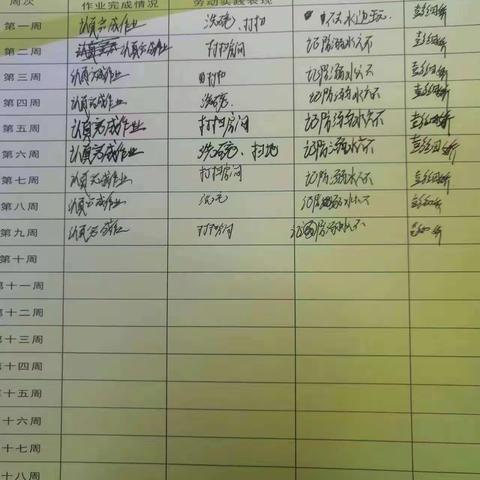 周次 作业完成情况 劳动实践表现
第一周 认真完成作业 洗碗、打扫 不去水边玩
第二周 认真完成作业 打扫房间 记防溺水六不
第三周 认真完成作业 打扫 记防溺水六不
第四周 认真完成作业 洗碗 记防溺水六不
第五周 认真完成作业 打扫房间 记防溺水六不
第六周 认真完成作业 洗碗、打扫 记防溺水六不
第七周 认真完成作业 打扫房间 记防溺水六不
第八周 认真完成作业 洗碗 记防溺水六不
第九周 认真完成作业 打扫房间 记防溺水六不
第十周
第十一周
第十二周
第十三周
第十四周
第十五周
第十六周
第十七周
第十八周